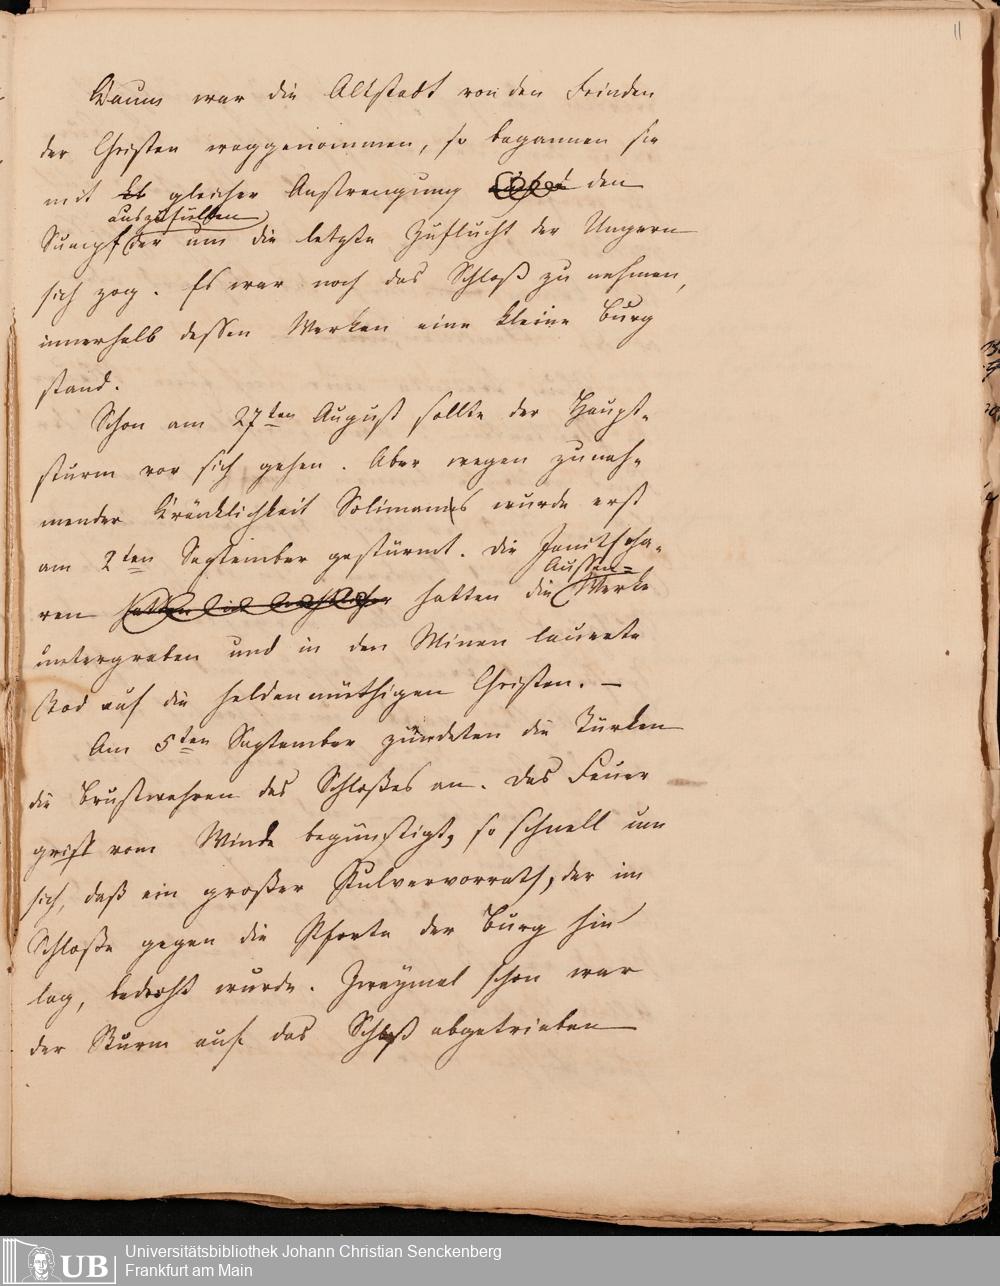 11
Kaum war die Altstadt von den Feinden
der Christen weggenommen, so begannen sie
mit gleicher Anstrengung den
auszufüllen
Sumpf der um die letzte Zuflucht der Ungern
sich zog. Es war noch das Schloß zu nehmen,
innerhalb dessen Werken eine kleine Burg
stand.
Schon am 27ten August sollte der Haupt-
sturm vor sich gehen. Aber wegen zuneh-
mender Kränklichkeit Solimans wurde erst
am 2ten September gestürmt. Die Janitscha-
Aussen-
ren hatten die Werke
untergraben und in den Minen lauerte
Tod auf die heldenmüthigen Christen. –
Am 5ten September zündeten die Türken
die Brustwehren des Schloßes an. Das Feuer
griff vom Winde begünstigt, so schnell um
sich, daß ein großer Pulvervorrath, der im
Schloße gegen die Pforte der Burg hin
lag, bedroht wurde. Zweymal schon war
der Sturm auf das Schloß abgetrieben
UB
Universitätsbibliothek Johann Christian Senckenberg
Frankfurt am Main